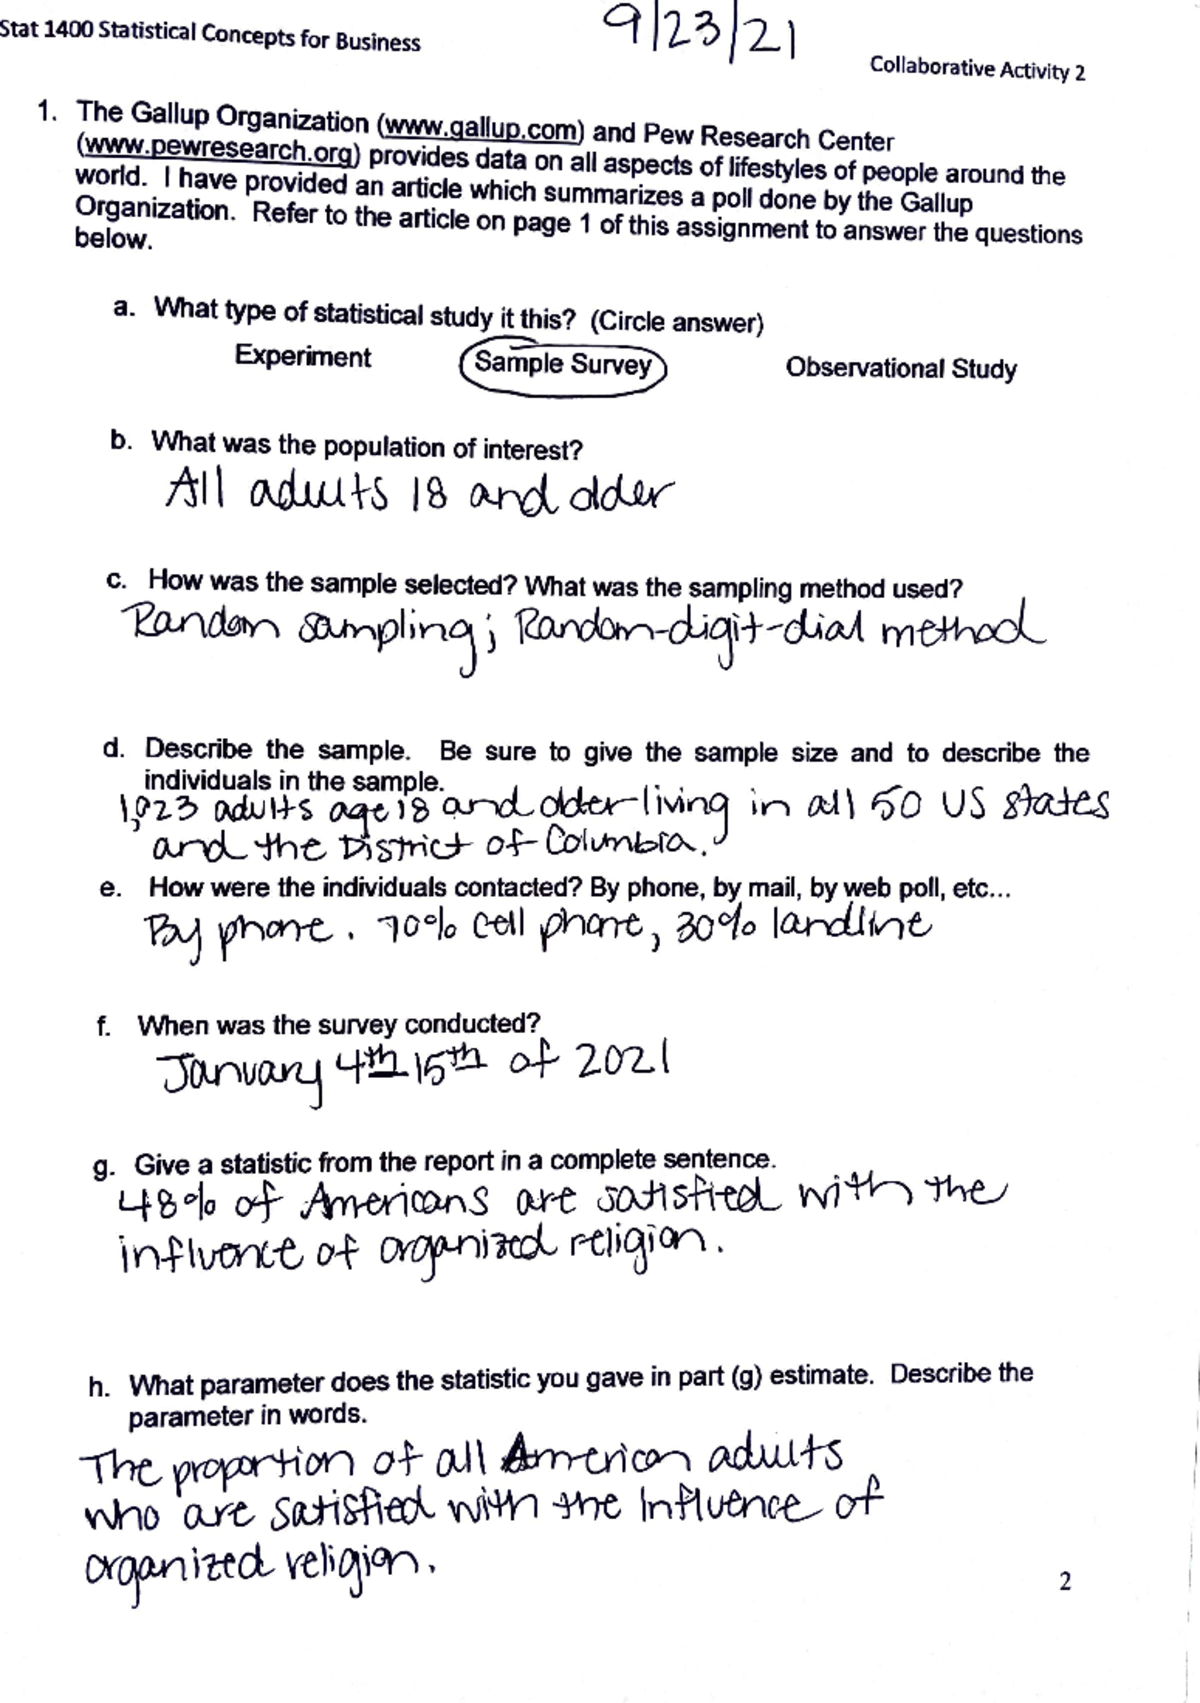 Stat 1400 Statistical Concepts for Business
9/23/21
Collaborative Activity 2
1. The Gallup Organization (www.gallup.com) and Pew Research Center
(www.pewresearch.org) provides data on all aspects of lifestyles of people around the
world. I have provided an article which summarizes a poll done by the Gallup
Organization. Refer to the article on page 1 of this assignment to answer the questions
below.
a. What type of statistical study it this? (Circle answer)
Experiment Sample Survey Observational Study
b. What was the population of interest?
All adults 18 and older
c. How was the sample selected? What was the sampling method used?
Random sampling; Random-digit-dial method
d. Describe the sample. Be sure to give the sample size and to describe the
individuals in the sample.
1,023 adults age 18 and older living in all 50 US states
and the District of Columbia.
e. How were the individuals contacted? By phone, by mail, by web poll, etc...
By phone. 70% cell phone, 30% landline
f. When was the survey conducted?
January 4th 15th of 2021
g. Give a statistic from the report in a complete sentence.
48% of Americans are satisfied with the
influence of organized religion.
h. What parameter does the statistic you gave in part (g) estimate. Describe the
parameter in words.
The proportion of all American adults
who are satisfied with the Influence of
organized religion.
2